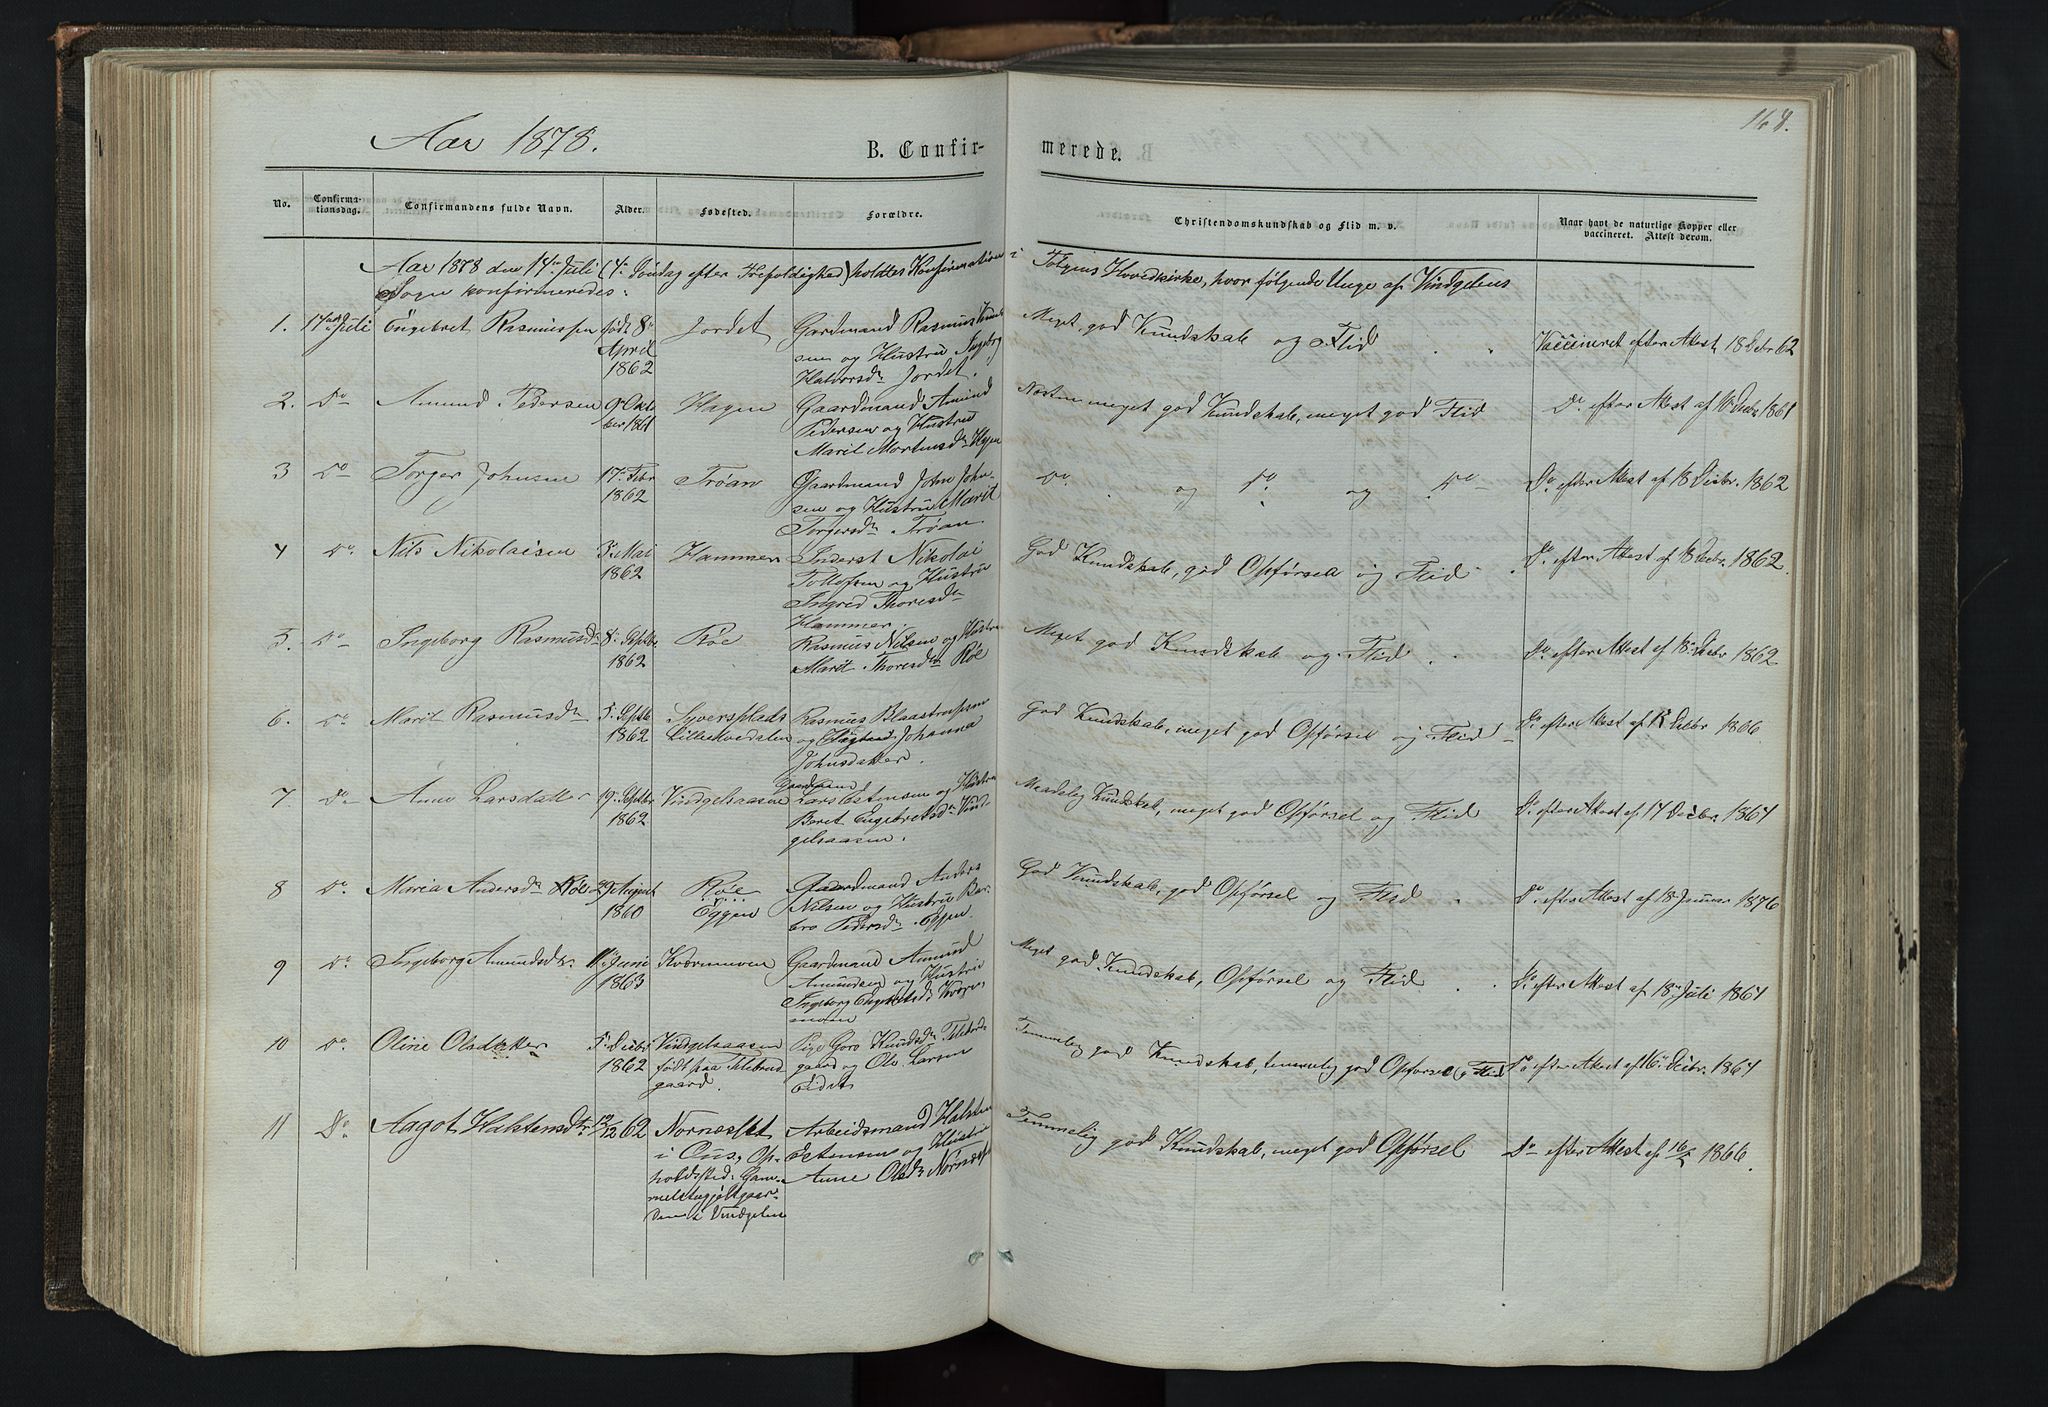 168.
Aar 1878.
B. Confirmerede.
No.
Confirmationsdag.
Confirmandens fulde Navn.
Alder.
Fødested.
Forældre.
Christendomskundskab og Flid m. v.
Naar havt de naturlige Kopper eller
vaccineret. Attest derom.
Aar 1878 den 14de Juli (4de Søndag efter Trefoldighed) holdtes Konfirmation i Tolgens Hovedkirke, hvor følgende Unge af Vindgelens
Sogn konfirmeredes:
1. Juli Engebret Rasmussen født 8de Jordet Gardmand Rasmus Meget god Kundskab og Flid Vaccineret efter Attest 18 62
April sen og Hustru Ingebrg
1862 Halvorsdr Jordet.
2. Do Amund Pedersen 9 Okto Hagen Gaardmand Amund Næsten meget god Kundskab, meget god Flid Do efter Attest af Decbr 1861
ber 1861 Pedersen og Hustru
Marit Mortensdr Hagen
3 Do Torger Johnsen 17de Febr Trøan Gaardmand John John- Do og Do og Do Do efter Attest af 18 Decbr. 1862
1862 sen og Hustru Marit
Torgersdr Trøan
4 Do Nils Nikolaisen 5 Mai Hammer Inderst Nikolai God Kundskab, god Opførsel og Flid Do efter Attest af 18 Decbr. 1862.
1862 Tollefsen og Hustru
Ingrid Thoresdr
Hammer.
5. Do Ingeborg Rasmusdr 8de Septbr Røe Rasmus Nilsen og Hustru Meget god Kundskab og Flid Do efter Attest af 18 Decbr 1862
1862 Marit Thoresdr Røe
6. Do Marit Rasmusdr 5 Septb Lyversplads Rasmus God Kundskab, meget god Opførsel og Flid Do efter Attest af Decbr 1866
1862 Lille Kvedalen og Johanna
Johnsdatter.
Gaardmand
7. Do Ane Larsdatter 19 Septbr Vindgelsaasen Lars Estensen og Hustru Maadelig Kundskab, meget god Opførsel og Flid Do efter Attest af 17 Decbr. 1864
1862 Beret Engebretsdr Vind-
gelsaasen.
8 Do Maria Andersdr Røe 29 August Røe Gaardmand Anders God Kundskab, god Opførsel og Flid Do efter Attest af 18 Januar 1876
1860 Eggen Nilsen og Hustru Bar-
bro Pedersdr Eggen.
9 Do Ingeborg Amundsdr. 11 Juni Kværnmoen Gaardmand Amund Meget god Kundskab, Opførsel og Flid Do efter Attest af 18 Juli 1864
1863 Amundsen og Hustru
Ingeborg Engebretsdr Kværn-
moen
10 Do Oline Olsdatter 5 Decbr Vindgelsaasen Pige Goro Knudsdr Tellebrd- Temmelig god Kundskab, temmelig god Opførsel og Flid Do efter Attest af 16 Decbr. 1864
1862 født paa Tellebrud- gaard og Ole Larsen
gaard.
11 Do Aagot Halstensdtr. 12/12 62 Nornæsset Arbeidsmand Halsten Temmelig god Kundskab, meget god Opførsel Do efter Attest af 16/5 1866.
i Ous, Op- Estensen og Hustru
holdssted: Gam- Anne Olsdr Nornæss
melstugjeltgaar-
den i Vindgelen